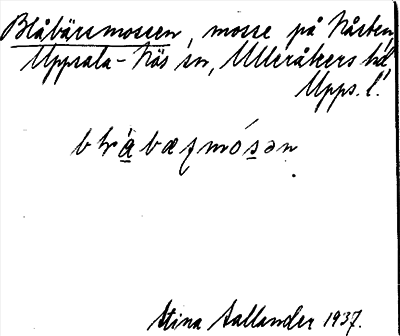 Blåbärsmossen, mosse på Nåsten,
Uppsala-Näs sn, Ulleråkers hd,
Upps. l.
blåbæʂmósən
Stina Sallander 1937.